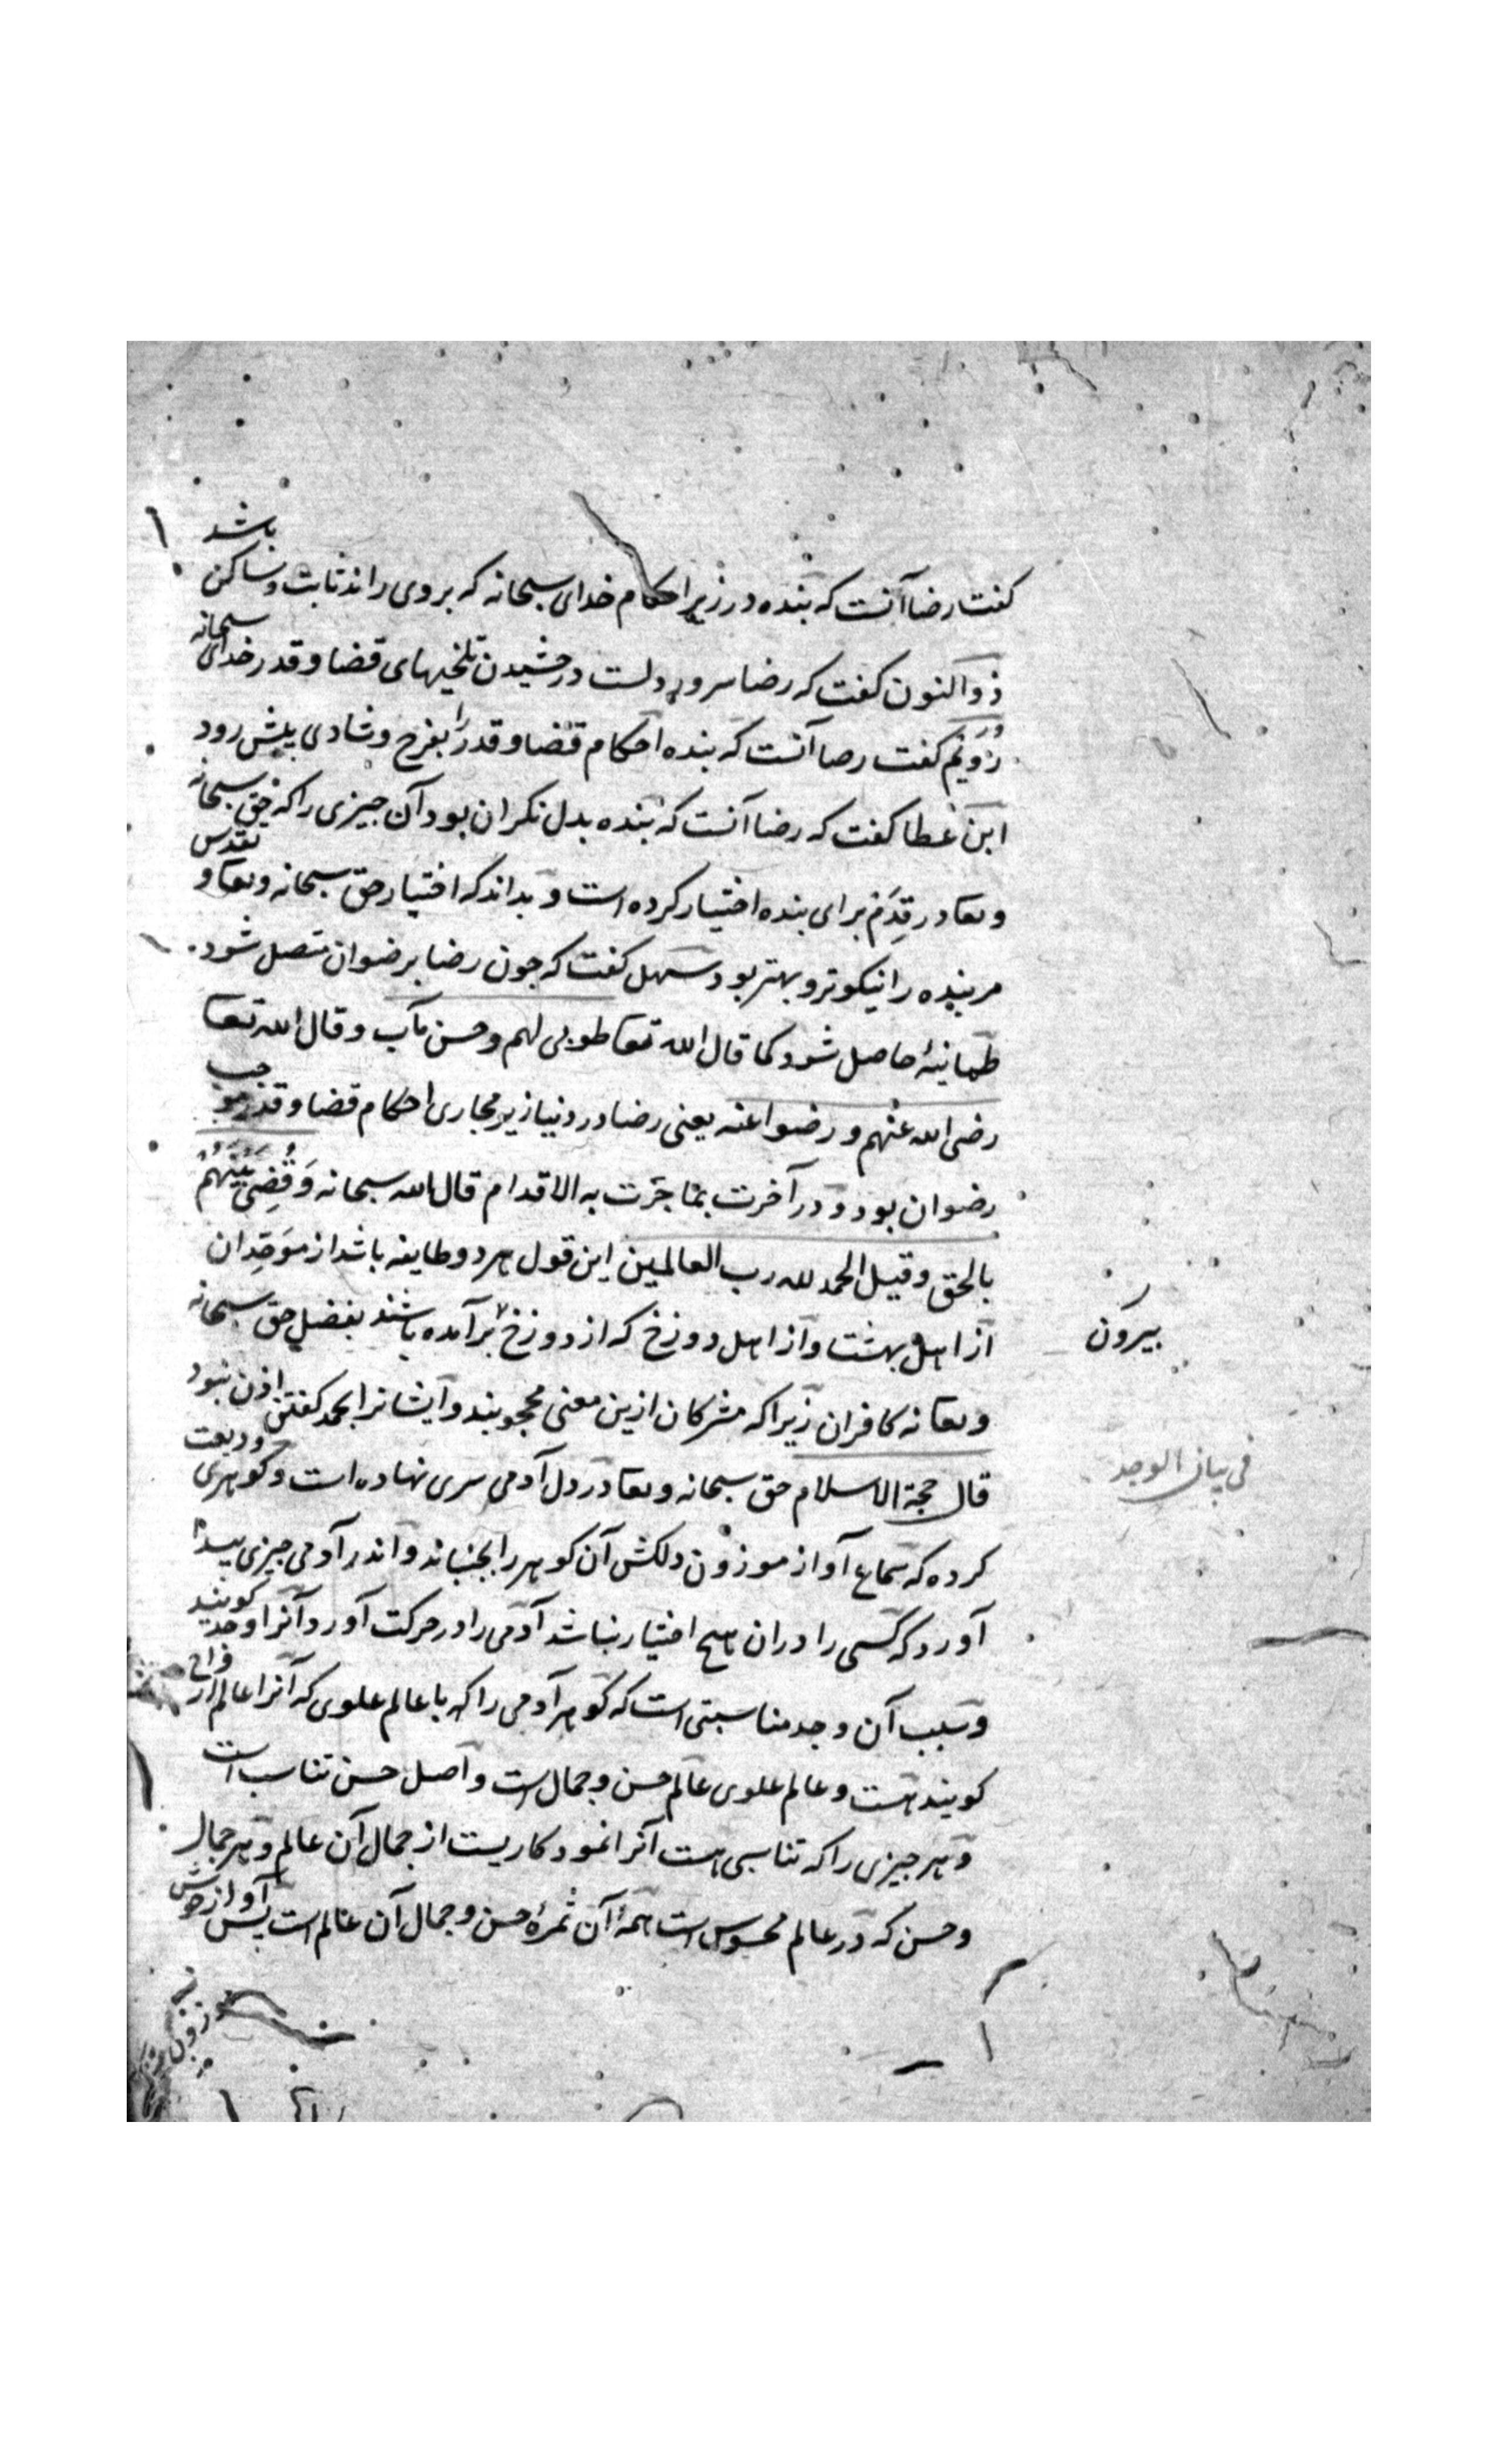 گفت رضا آنست که بنده در زیر احکام خدای سبحانه که بروی راند ثابت و ساکن باشد
ذوالنون گفت که رضا سرور دلست در چشیدن تلخیهای قضا و قدر خدای سبحانه
رُوَیم گفت رضا آنست که بنده احکام قضا و قدر را بفرح و شادی پیش رود
ابن عطا گفت که رضا آنست که بنده بدل نگران بود آن چیزی را که حق سبحانه
وتعا در قِدَم برای بنده اختیار کرده است و بداند که اختیار حق سبحانه وتعا و تقدس
مر بنده را نیکوتر و بهتر بود سهل گفت که چون رضا برضوان متصل شود
طمانینهٔ حاصل شود کما قال الله تعا طوبی لهم وحسن مآب وقال الله تعا
رضی الله عنهم ورضوا عنه یعنی رضا در دنیا زیر مجاری احکام قضا و قدر موجب
رضوان بود و در آخرت بما جَرَت به الاقدام قال الله سبحانه وَقُضِیَ بَیْنَهُمْ
بالحق وقیل الحمد لله رب العالمین این قول هر دو طایفه باشد از موَحِّدان
از اهل بهشت و از اهل دوزخ که از دوزخ برآمده باشند بفضل حق سبحانه
بیرون
وتعا نه کافران زیرا که مشرکان ازین معنی محجوبند و ایشانرا الحمد گفتن اذن نبود
قال حجة الاسلام حق سبحانه وتعا در دل آدمی سری نهاده است و گوهری ودیعت
فی بیان الوجد
کرده که سماع آواز موزون دلکش آن گوهر را بجنباند و اندر آدمی چیزی پیدا
آورد که کسی را دران هیچ اختیار نباشد آدمی را در حرکت آورد و آنرا وجد گویند
وسبب آن وجد مناسبتی است که گوهر آدمی را که با عالم علوی که آنرا عالم ارواح
گویند هست و عالم علوی عالم حسن و جمال است و اصل حسن تناسب است
و هر چیزی را که تناسبی هست آنرا نمودکاریست از جمال آن عالم و هر جمال
و حسن که در عالم محسوس است همهٔ آن ثمرهٔ حسن و جمال آن عالم است پس آواز خوش